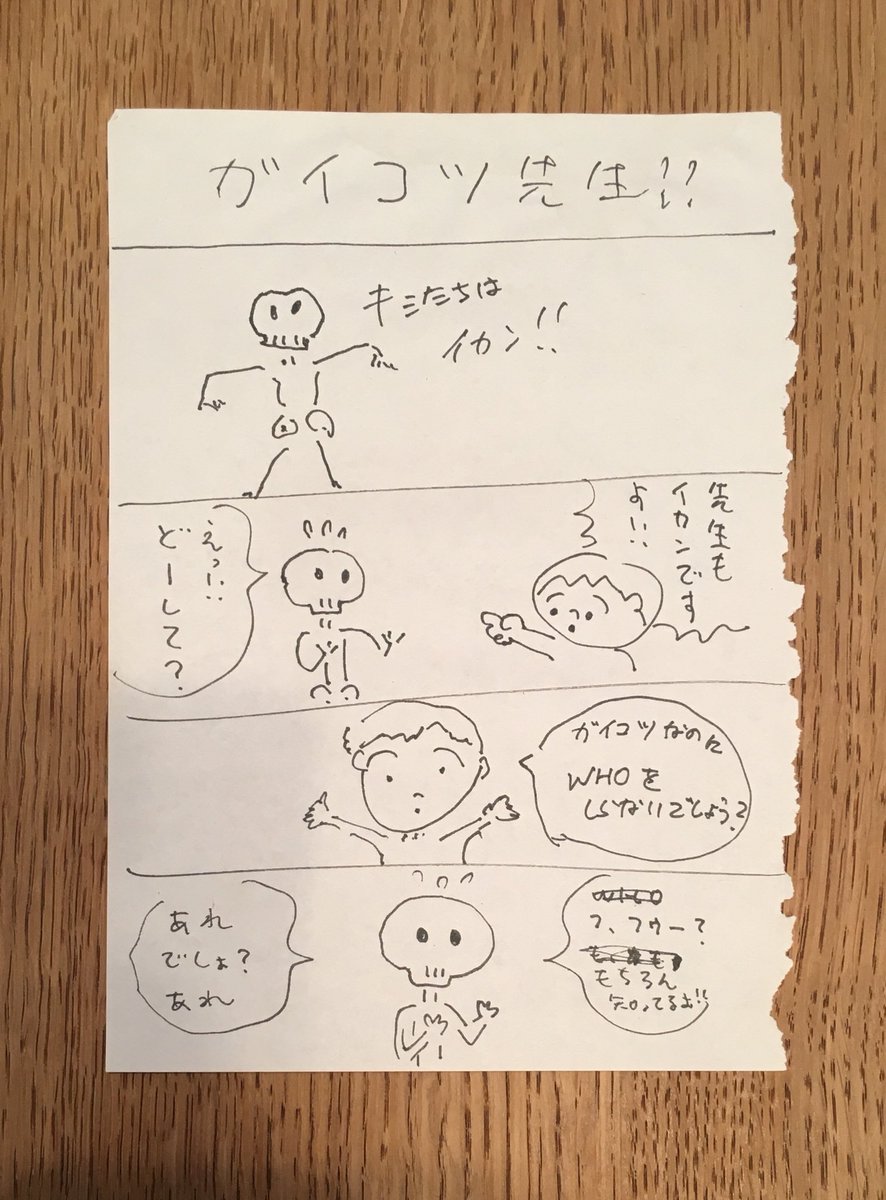 ガイコツ先生!!
キミたちは
イカン!!
先生も
イカンです
よ!!
えっ!!
どーして?
ガイコツなのに
WHOを
しらないでしょう?
フ、フゥー?
もちろん
知ってるよ!!
あれ
でしょ?
あれ